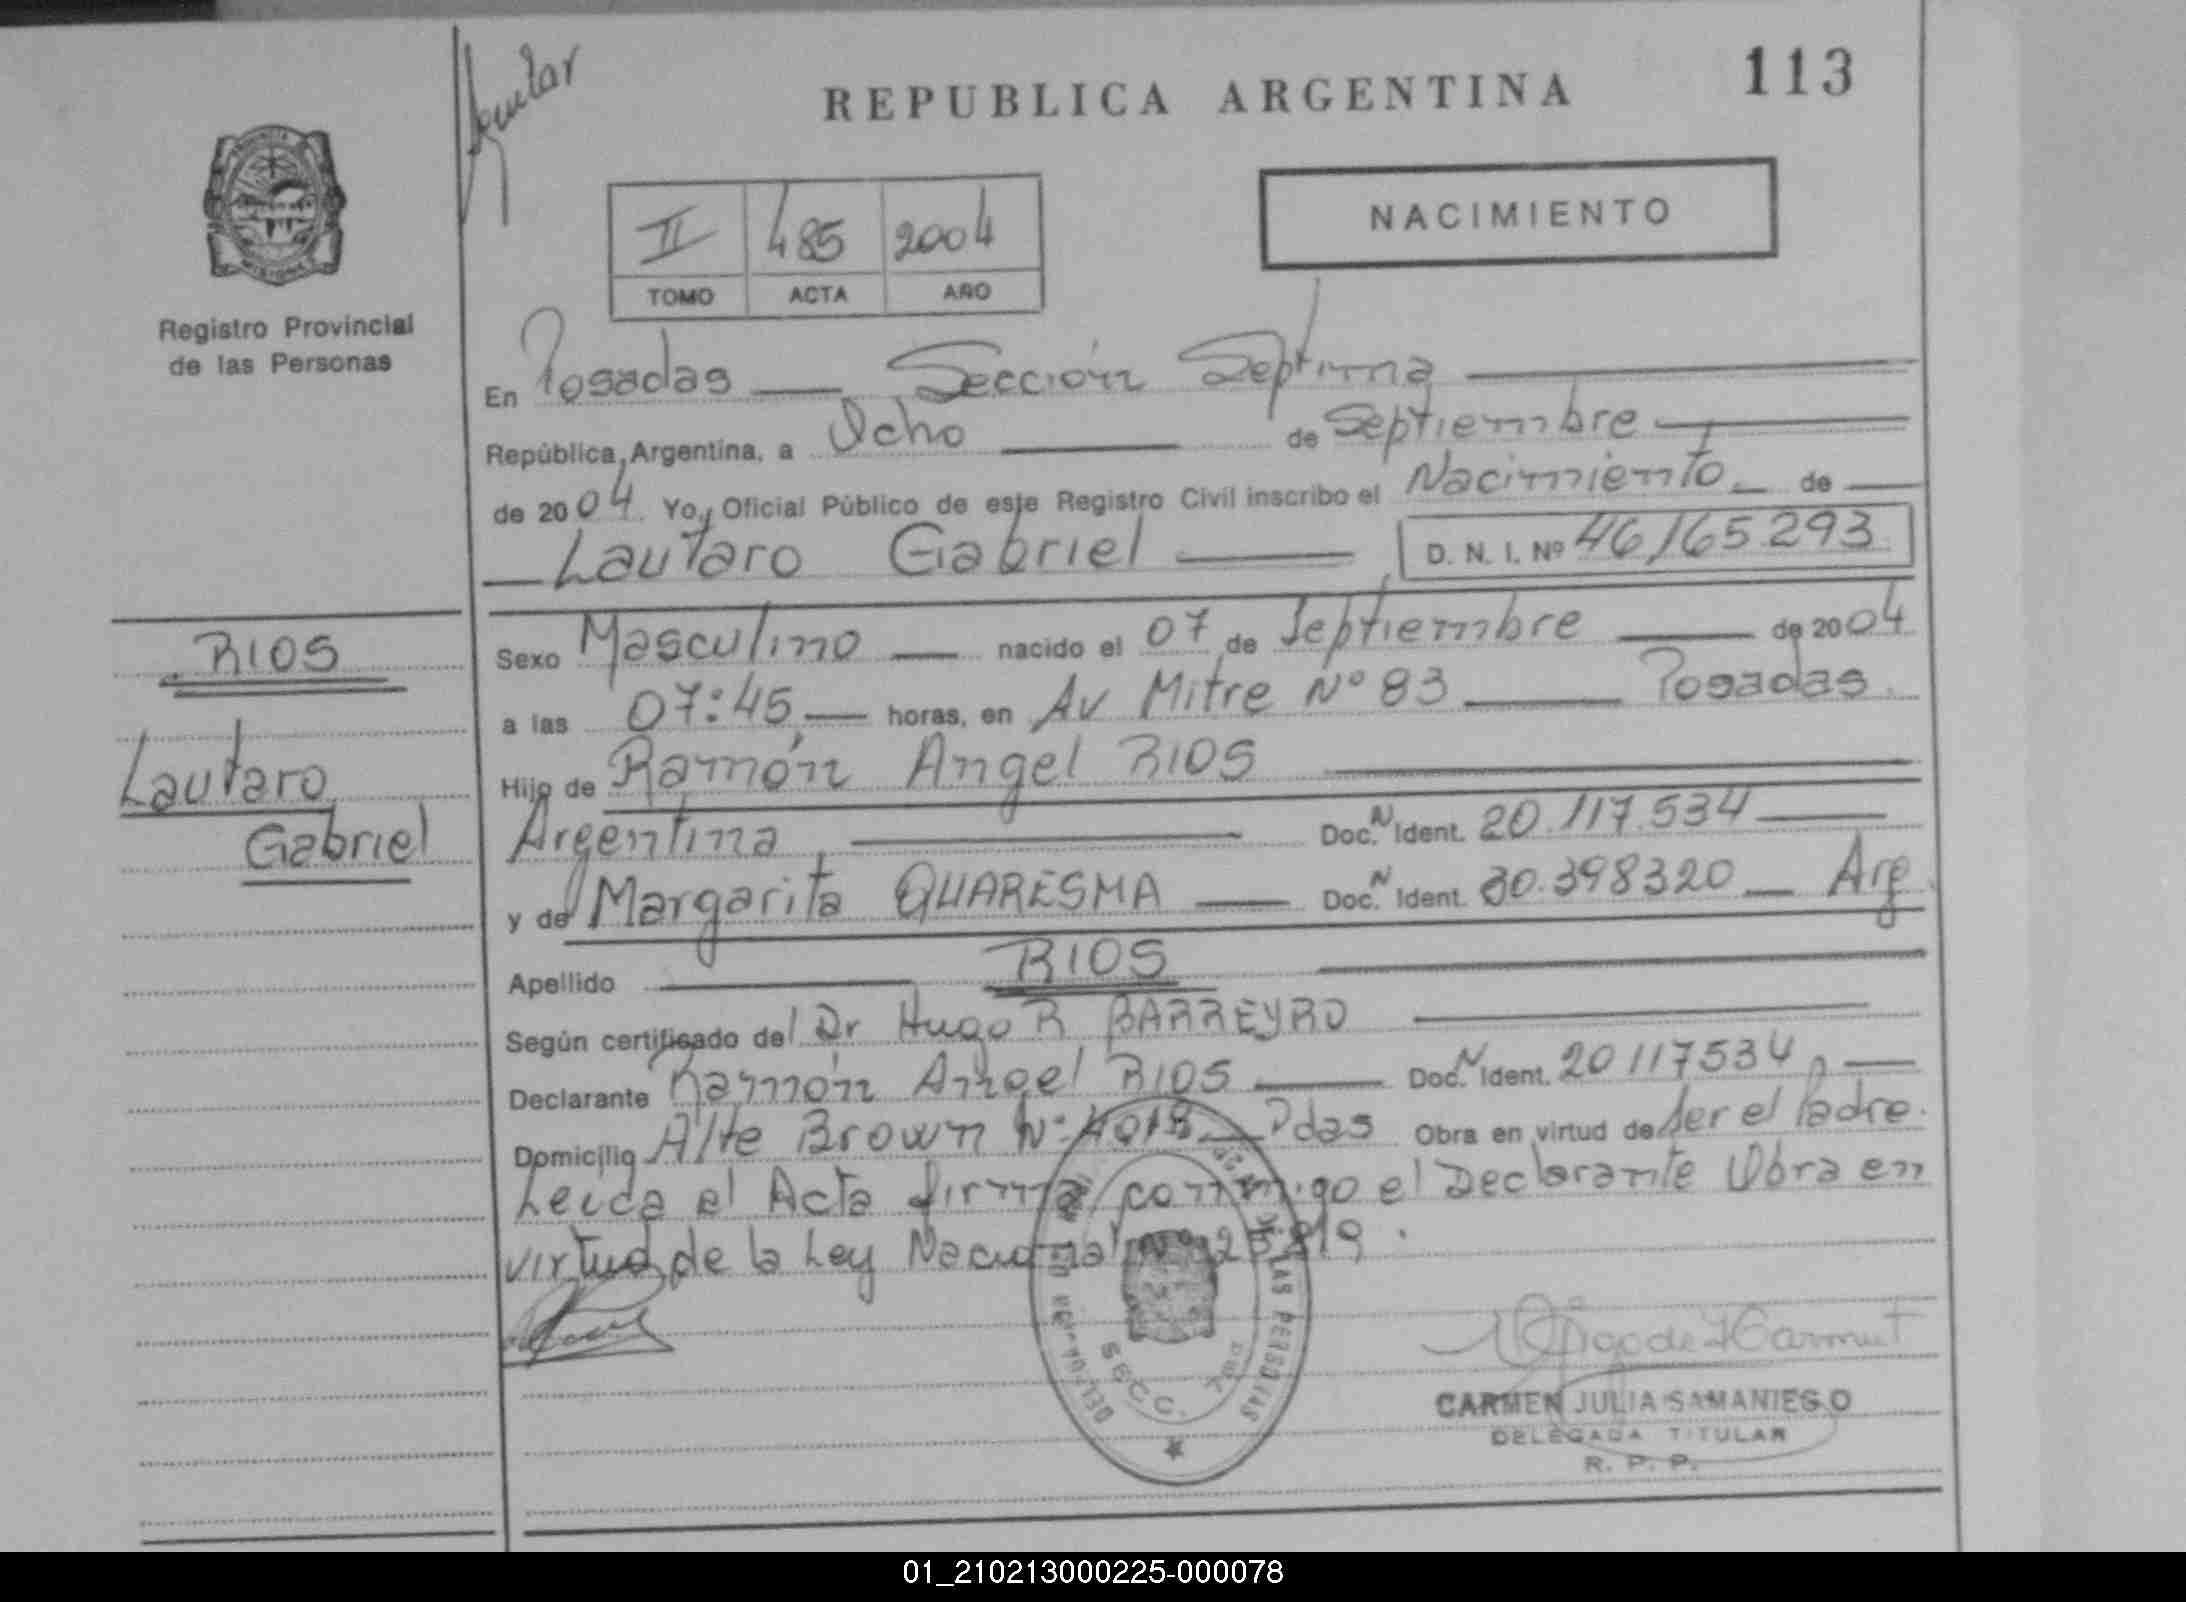 Aguilar
REPUBLICA ARGENTINA
113
II 485 2004
TOMO ACTA AÑO
NACIMIENTO
Registro Provincial
de las Personas
En Posadas Sección Septima
República Argentina, a Ocho de Septiembre
de 2004. Yo, Oficial Público de este Registro Civil inscribo el Nacimiento de
Lautaro Gabriel D. N. I. Nº 46165293
RIOS
Lautaro
Gabriel
Sexo Masculino nacido el 07 de Septiembre de 2004
a las 07:45 horas, en Av Mitre Nº 83 Posadas.
Hijo de Ramón Angel RIOS
Argentina Doc. N Ident. 20.117.534
y de Margarita QUARESMA Doc. N Ident. 30.398320 Arg.
Apellido RIOS
Según certificado del Dr Hugo R BARREYRO
Declarante Ramón Angel RIOS Doc. N Ident. 20117534
Domicilio Alte Brown Nº 4018 Pdas Obra en virtud de ser el Padre.
Leida el Acta firma conmigo el Declarante Obra en
virtud de la Ley Nacional Nº 25.819.
DE LAS PERSONAS
SECC. 7ma
CARMEN JULIA SAMANIEGO
DELEGADA TITULAR
R. P. P.
01_210213000225-000078